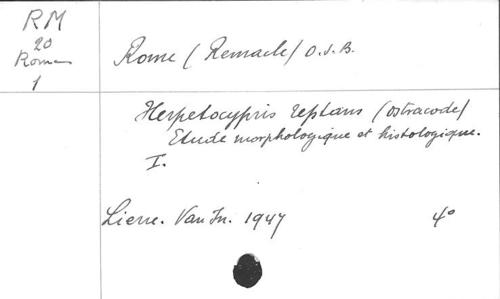 RM
20
Rome
1
Rome (Remacle) O.S.B.
Herpetocypris reptans (Ostracode)
Etude morphologique et histologique.
I.
Lierre. Van In. 1947 4°